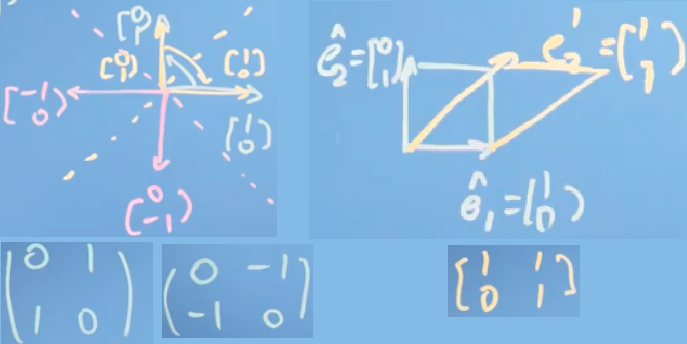 [0 1]
[0 1]
[1 0]
[-1 0]
[1 0]
[0 -1]
ê₂ = [0 1]
e₂' = [1 1]
ê₁ = [1 0]
(0 1
1 0)
(0 -1
-1 0]
[1 1
0 1]